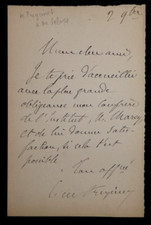 2 9bre
Mon cher ami,
Je te prie d'accueillir
avec la plus grande
obligeance mon confrère
de l'institut, M.
et de lui donner satis-
faction, si cela est
possible
Ton affné